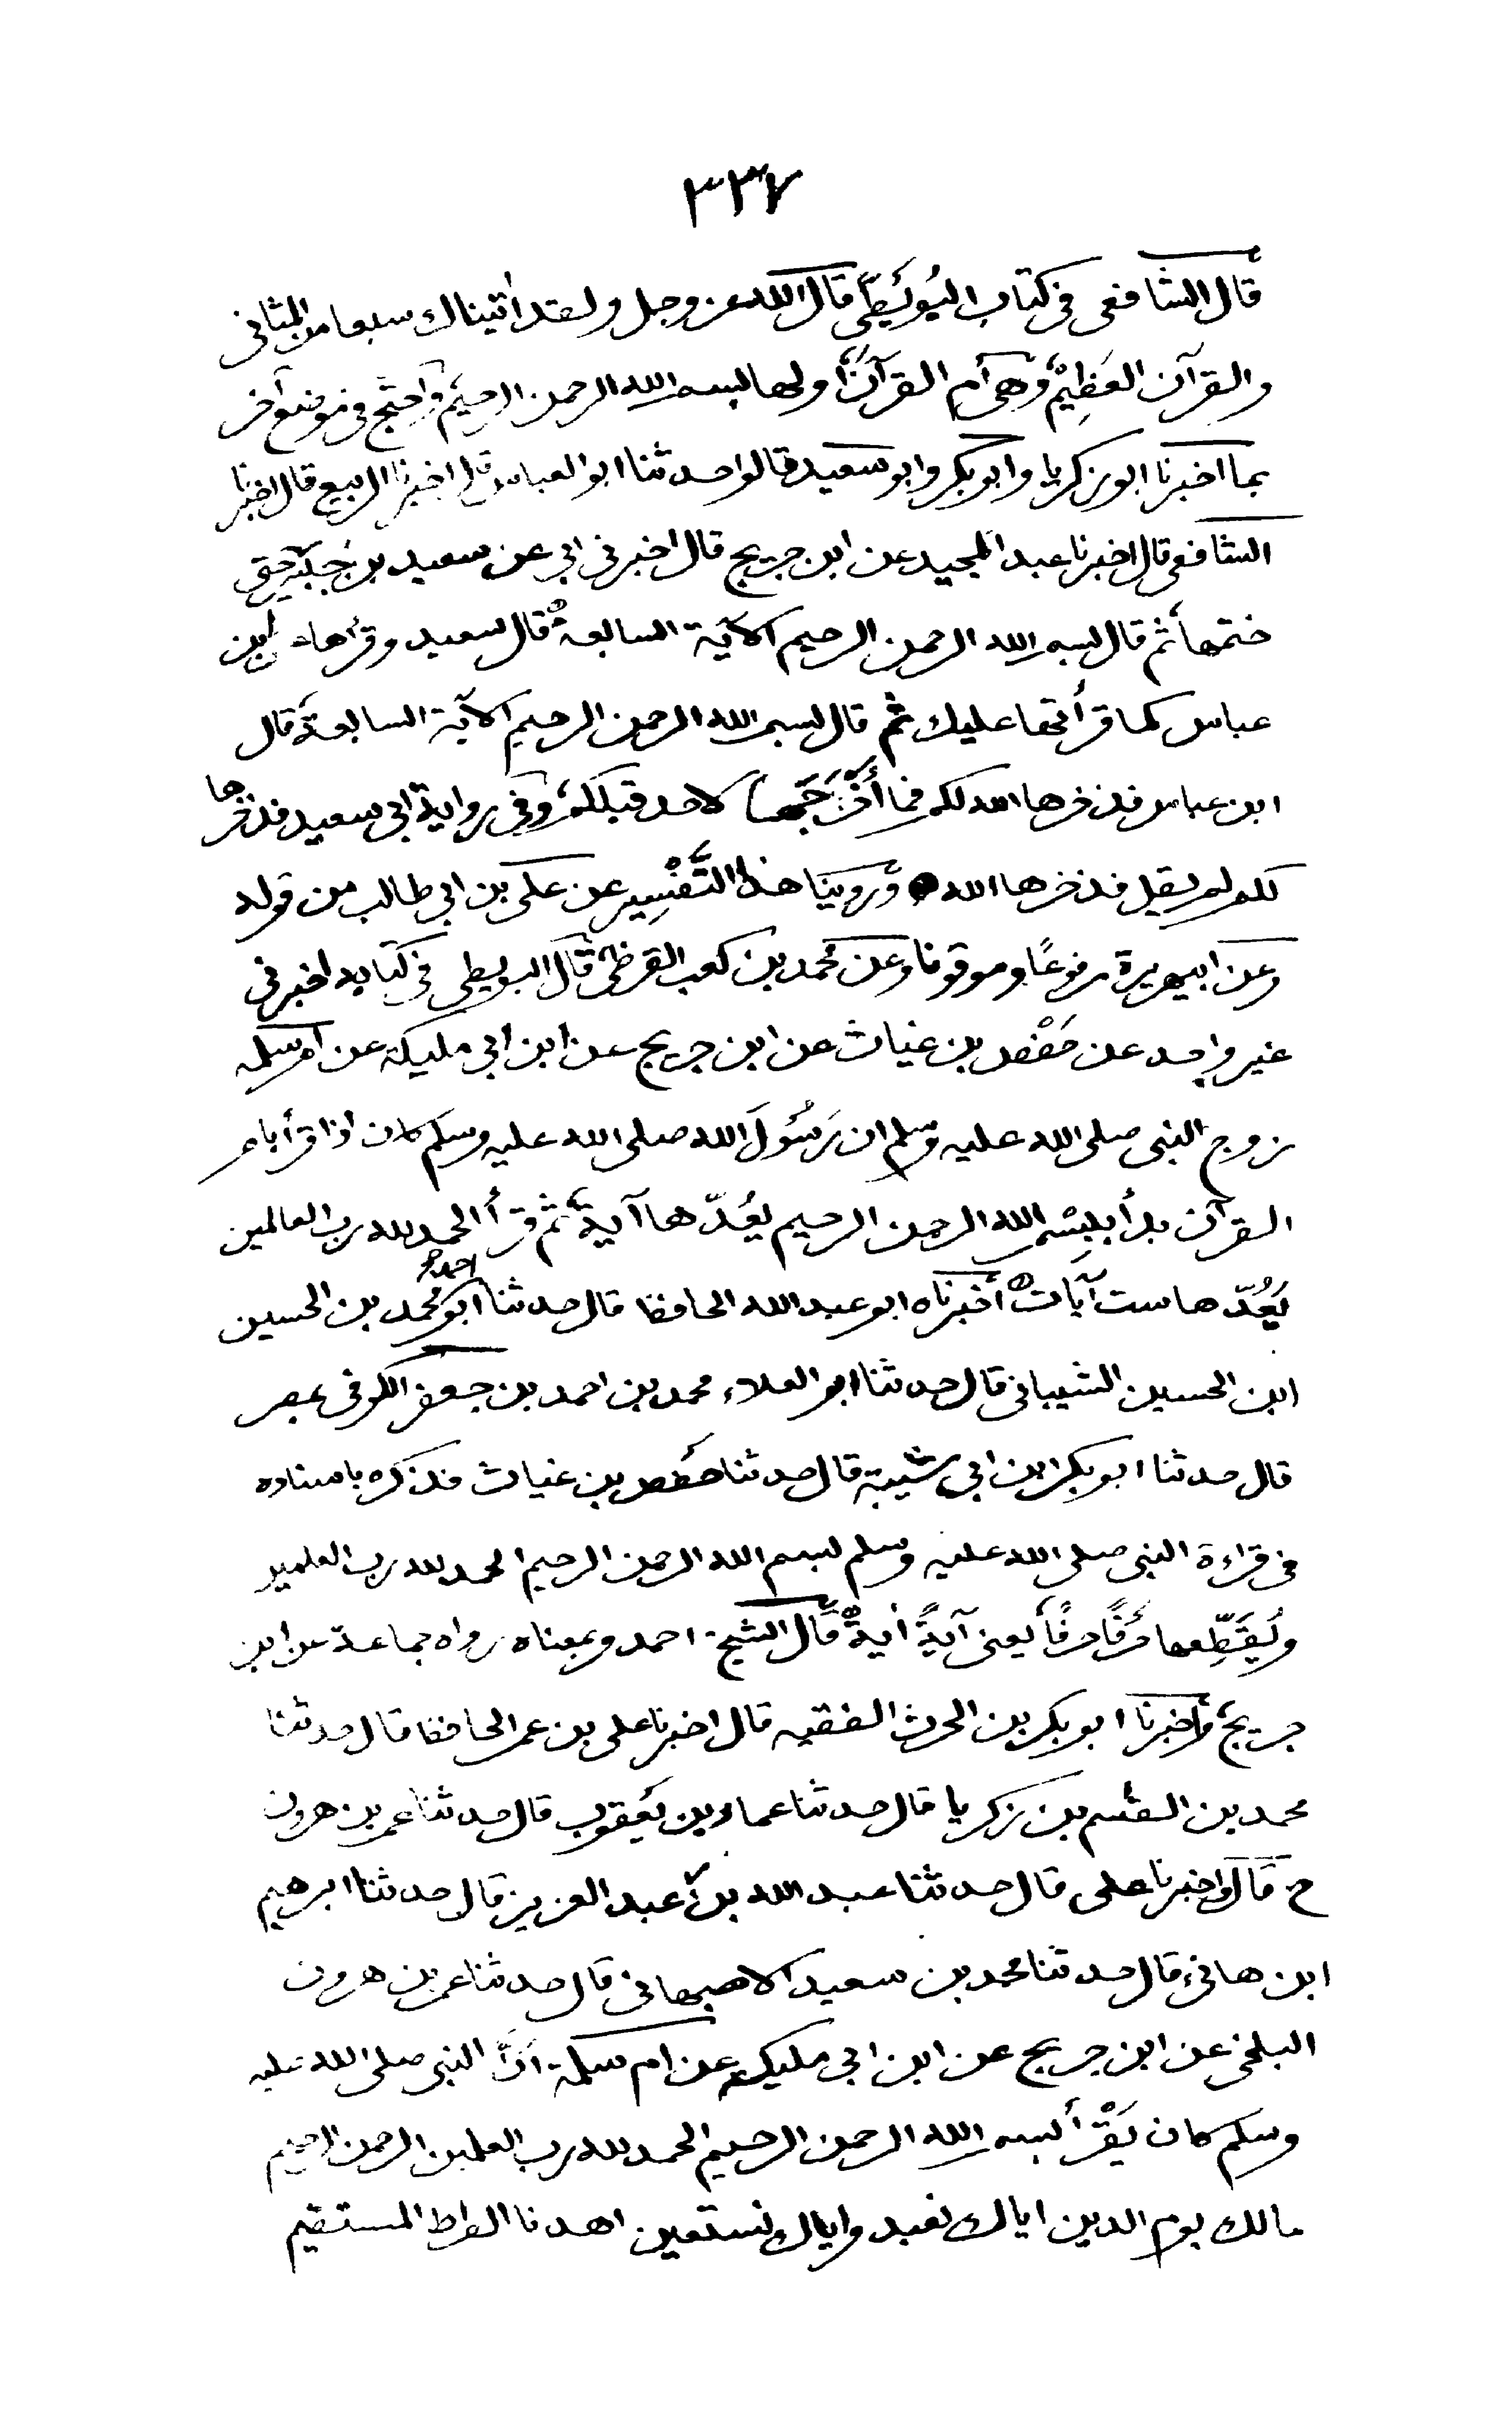 ٣٣٧
قال الشافعى فى كتاب البُوَيْطِيّ قال الله عز وجل ولقد أتيناك سبعا من المثانى
والقرآن العَظِيْمَ وَهى أم القرآن أولها بسم الله الرحمن الرحيم وَاحتج فى موضع آخر
بما اخبرنا ابو زكريا وابو بكر وابو سعيد قالوا حدثنا ابو العباس قال اخبرنا الربيع قال اخبرنا
الشافعى قال اخبرنا عبد المجيد عن ابن جريج قال اخبرنى ابى عن سعيد بن جبير حتى
ختمها ثم قال بسم الله الرحمن الرحيم الآية السابعة قال سعيد وقرأها ابن
عباس كما قرأتها عليك ثم قال بسم الله الرحمن الرحيم الآية السابعة قال
ابن عباس فذخرها الله لكم فما أَخْرَجَها لاحد قبلكم وفى رواية ابى سعيد فذخرها
لكم لم يقل فذخرها الله وَروينَا هذا التَّفْسِير عن على بن ابى طالب من قوله
وعن ابى هريرة مرفوعًا وموقوفا وعن محمد بن كعب القرظى قال البويطى فى كتابه اخبرنى
غير واحد عن حَفْص بن غياث عن ابن جريج عن ابن أبى مليكة عن ام سلمه
زوج النبى صلى الله عليه وسلم ان رَسُولَ الله صلى الله عليه وسلم كان اذا قرأ بام
القرآن بدأ ببِسْم الله الرحمن الرحيم يَعُدّها آية ثم قرأ الحمد لله رب العالمين
يَعُدّها ست آيَات أَخبرَناه ابو عبد الله الحافظ قال حدثنا ابو احمد محمد بن الحسين
ابن الحسين الشيبانى قال حدثنا ابو العلاء محمد بن احمد بن جعفر الكوفى بمصر
قال حدثنا ابو بكر بن ابى شيبة قال حدثنا حفص بن غياث فذكره باسناده
فى قراءة النبى صلى الله عليه وسلم بسم الله الرحمن الرحيم الحمد لله رب العلمين
وَيُقَطِّعها حَرْفًا حرفًا يعنى آيةً أيةً قَال الشيخ احمد وبمعناه رواه جماعة عن ابن
جريج وَأخبرنا ابو بكر بن الحرث الفقيه قال اخبرنا على بن عمر الحافظ قال حدثنا
محمد بن القسم بن زكريا قال حدثنا عماد بن يَعقوب قال حدثنا عمر بن هرون
ح قَال وَاخبرنا على قال حدثنا عبد الله بن عبد العزيز قال حدثنا ابرهيم
ابن هانئ قال حدثنا محمد بن سعيد الاصبهانى قال حدثنا عمر بن هرون
البلخى عن ابن جريج عن ابن ابى مليكة عن ام سلمة أنَّ النبى صلى الله عليه
وسلم كان يَقْرأ بسم الله الرحمن الرحيم الحمد لله رب العلمين الرحمن الرحيم
مالك يوم الدين اياك نعبد واياك نستعين اهدنا الصراط المستقيم